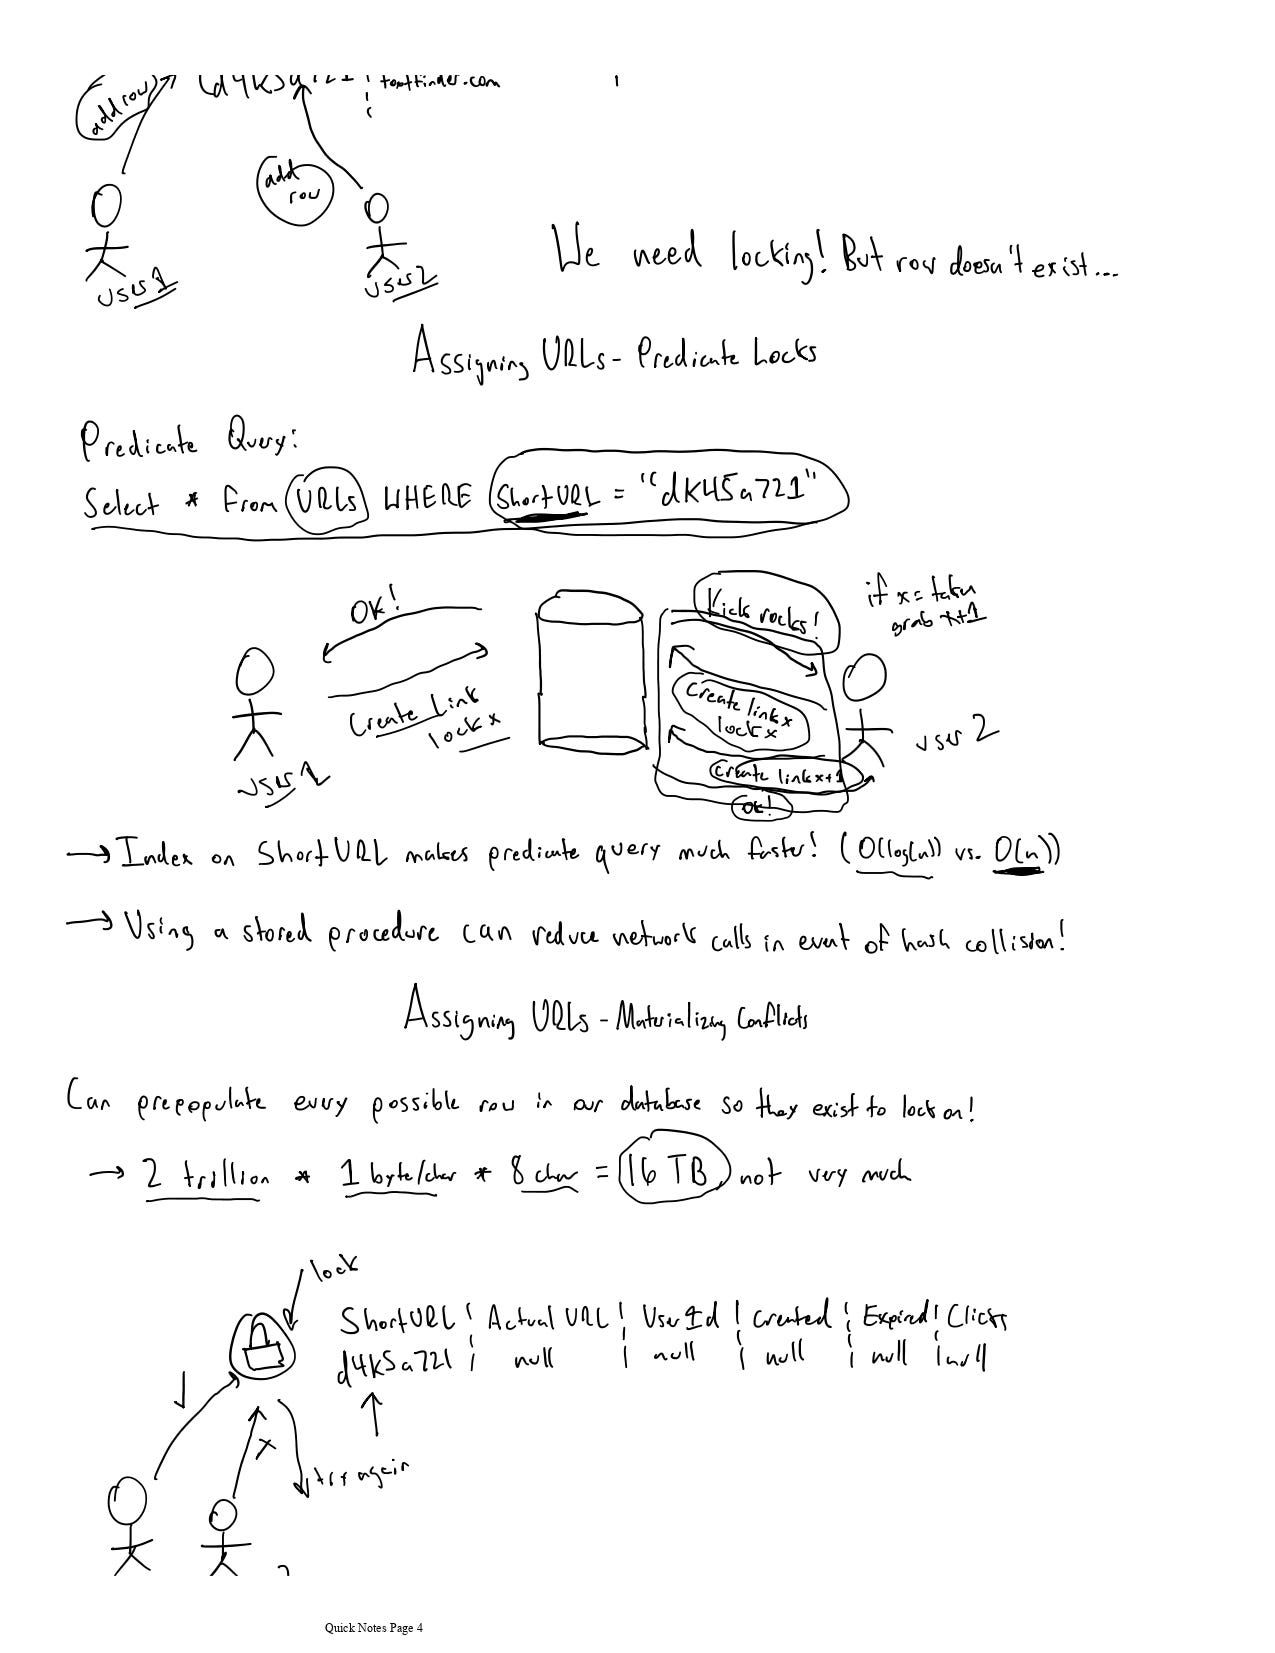 add row
add
row
user 1
user 2
We need locking! But row doesn't exist...
Assigning URLs - Predicate Locks
Predicate Query:
Select * From URLs WHERE ShortURL = "dk45a721"
OK!
Kick rocks!
if x = taken
grab x+1
Create Link
lock x
create link x
lock x
user 1
user 2
create link x+1
OK!
→ Index on ShortURL makes predicate query much faster! (O(log(n)) vs. O(n))
→ Using a stored procedure can reduce network calls in event of hash collision!
Assigning URLs - Materializing Conflicts
Can prepopulate every possible row in our database so they exist to lock on!
→ 2 trillion * 1 byte/char * 8 char = 16 TB, not very much
lock
ShortURL | Actual URL | User Id | Created | Expired | Clicks
d4k5a721 | null | null | null | null | null
x
try again
Quick Notes Page 4